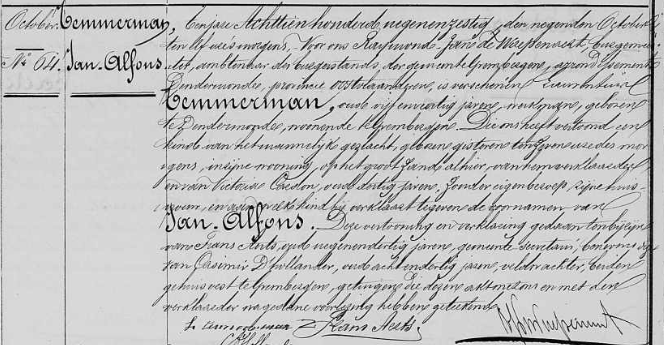 October
N° 64.
Temmerman,
Jan-Alfons.
Ten jare Achttien honderd negenenzestig den negenden October
ten elf uers morgens, Voor ons Raymond-Jans de burgemee-
ster, ambtenaar des burgerstands der gemeente Grembergen, arrondissement
Dendermonde, provincie oostvlaanderen, is verschenen
Temmerman, oud vijfenveertig jaren, werkman, geboren
te Dendermonde, wonende te Grembergen. Die ons heeft vertoond een
kind van het mannelyk geslacht, geboren gisteren ten ure des mor-
gens, in zijne wooning, op het groot Zand alhier, van hem verklaarder
en van Victoria Cardon, oud dertig jaren, zonder eigen beroep, zijne huis-
vrouw, en aan welk kind hij verklaart te geven de voornamen van
Jan-Alfons. Deze vertooning en verklaring gedaan ten bijzijn
van Frans Aerts, oud negenendertig jaren, gemeente secretaris, en
van Casimir D'hollander, oud achtendertig jaren, veldwachter, beiden
gehuisvest te Grembergen, getuigen die dezen akt met ons en met den
verklaarder na gedane voorlezing hebben geteekend.
Frans Aerts.